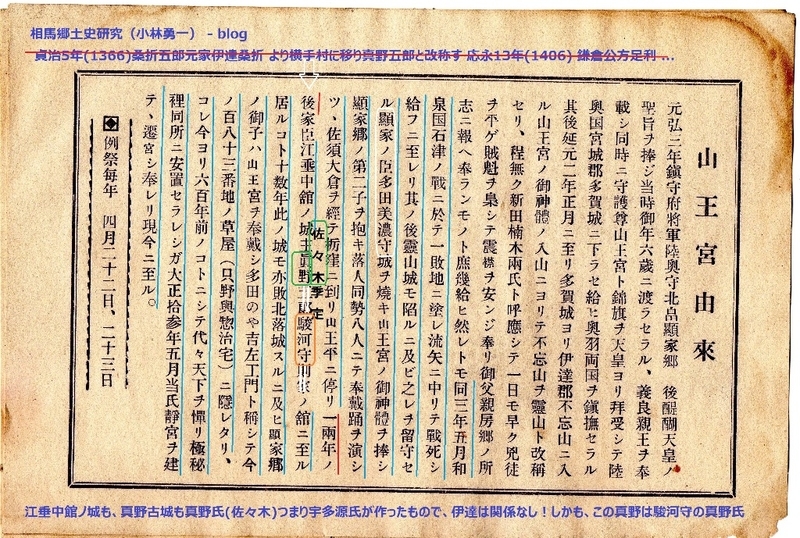 相馬郷土史研究（小林勇一） - blog
貞治5年(1366)桑折五郎元家伊達桑折 より横手村に移り真野五郎と改称す 応永13年(1406) 鎌倉公方足利 …
山王宮由來
元弘三年鎮守府將軍陸奥守北畠顯家郷 後醍醐天皇ノ
聖旨ヲ捧ジ当時御年六歳ニ渡ラセラル、義良親王ヲ奉
載シ同時ニ守護尊山王宮ト錦旗ヲ天皇ヨリ拜受シテ陸
奥国宮城郡多賀城ニ下ラセ給ヒ奥羽両国ヲ鎮撫セラル
其後延元二年正月ニ至リ多賀城ヨリ伊達郡不忘山ニ入
ル山王宮ノ御神體ノ入山ニヨリテ不忘山ヲ靈山ト改稱
セリ、程無ク新田楠木兩氏ト呼應シテ一日モ早ク兇徒
ヲ平ゲ賊魁ヲ梟シテ震襟ヲ安ンジ奉リ御父親房郷ノ所
志ニ報ヘ奉ランモノト庶幾給ヒ然レトモ同三年五月和
泉国石津ノ戰ニ於テ一敗地ニ塗レ流矢ニ中リテ戰死シ
給フニ至レリ其ノ後靈山城モ陥ルニ及ビ之レヲ留守セ
ル顯家ノ臣多田美濃守城ヲ燒キ山王宮ノ御神體ヲ捧シ
顯家郷ノ第二子ヲ抱キ落人同勢八人ニテ奉戴踊ヲ演シ
ツ、佐須大倉ヲ經テ栃窪ニ到リ山王平ニ停リ一兩年ノ
後家臣江垂中舘ノ城主眞野五郎駿河守則家ノ舘ニ至ル
佐々木季定
居ルコト十数年此ノ城モ亦敗北落城スルニ及ヒ顯家郷
ノ御子ハ山王宮ヲ奉戴シ多田のや吉左エ門ト稱シテ今
ノ百八十三番地ノ草屋（只野與惣治宅）ニ隱レタリ、
コレ今ヨリ六百年前ノコトニシテ代々天下ヲ憚リ極秘
裡同所ニ安置セラレシガ大正拾参年五月当氏靜宮ヲ建
テ、遷宮シ奉レリ現今ニ至ル。
◆ 例祭毎年 四月二十二日、二十三日
江垂中館ノ城も、真野古城も真野氏(佐々木)つまり宇多源氏が作ったもので、伊達は関係なし！しかも、この真野は駿河守の真野氏